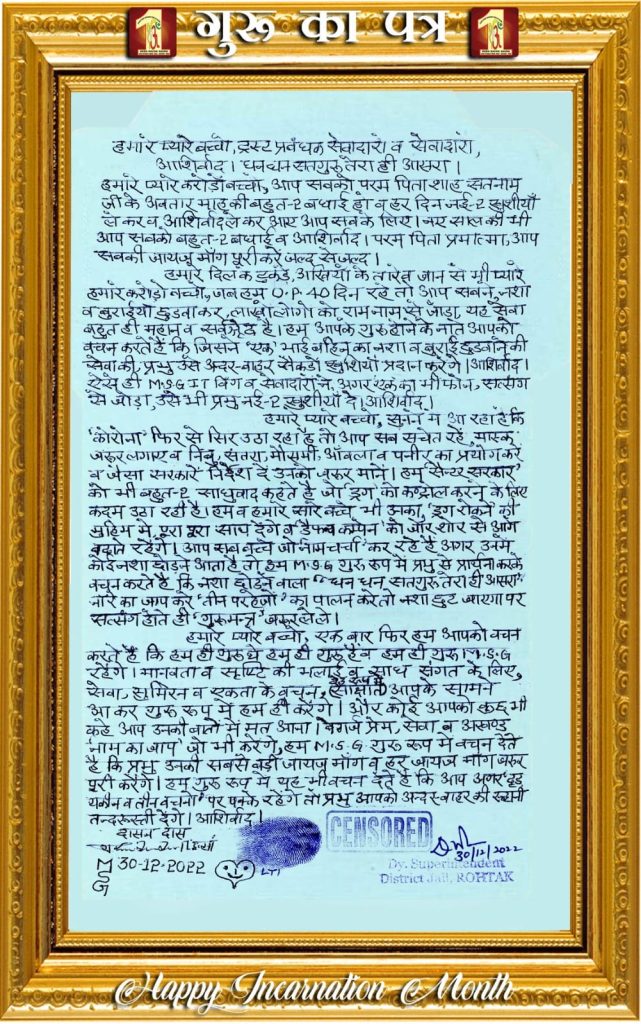 गुरु का पत्र
हमारे प्यारे बच्चों, ट्रस्ट प्रबंधक सेवादारों व सेवादारों,
आशिर्वाद। धन धन सतगुरु तेरा ही आसरा।
हमारे प्यारे करोड़ों बच्चों, आप सबको परम पिता शाह सतनाम
जी के अवतार माह की बहुत-2 बधाई हो व हर दिन नई-2 खुशीयाँ
लेकर व आशिर्वाद लेकर आए आप सबके लिए। नए साल की भी
आप सबको बहुत-2 बधाई व आशिर्वाद। परम पिता प्रमात्मा, आप
सबकी जायज़ माँग पूरी करें जल्द से जल्द।
हमारे दिल के टुकड़े, आँखियों के तारे व जान से भी प्यारे
हमारे करोड़ों बच्चों, जब हम U.P. 40 दिन रहे तो आप सबने, नशा
व बुराईयाँ छुडवा कर, लाखों लोगों को, राम नाम से जोड़ा, यह सेवा
बहुत ही महान व सर्वश्रेष्ठ है। हम आपके गुरु होने के नाते आपको
वचन करते हैं कि जिसने 'एक' भाई बहिन का नशा व बुराई छुडवाने की
सेवा की, प्रभु उसे अंदर-बाहर सैंकड़ों खुशियाँ प्रदान करेंगे। आशिर्वाद।
ऐसे ही M.S.G IT विंग व सेवादारों ने, अगर एक का भी फोन, सत्संग
से जोड़ा, उसे भी प्रभु नई-2 खुशीयाँ दे। आशिर्वाद।
हमारे प्यारे बच्चों, सुनने में आ रहा है कि
'कोरोना' फिर से सिर उठा रहा है तो आप सब सचेत रहें, मास्क
जरुर लगाए व निंबू, संतरा, मोसमी, आँवला व पनीर का प्रयोग करें
व जैसा सरकारें निर्देश दें उनको जरुर मानें। हम 'सेन्टर सरकार'
को भी बहुत-2 साधुवाद कहते हैं जो 'ड्रग' को कन्ट्रोल करने के लिए
कदम उठा रही है। हम व हमारे सारे बच्चे भी उनका, 'ड्रग रोकने की
मुहिम में, पूरा पूरा साथ देंगे व 'डैफ्थ कम्पेन' को जोर शोर से आगे
बढ़ाते रहेंगे। आप सब बच्चे जो 'नामचर्चा' कर रहे हैं अगर उनमें
कोई नशा छोड़ने आता है तो हम M.S.G गुरु रूप में प्रभु से प्रार्थना करके
वचन करते हैं, कि नशा छोड़ने वाला 'धन धन सतगुरु तेरा ही आसरा'
नारे का जाप करे 'तीन परहेजों' का पालन करे तो नशा छुट जाएगा पर
सत्संग होते ही 'गुरुमन्त्र' जरुर ले ले।
हमारे प्यारे बच्चों, एक बार फिर हम आपको वचन
करते हैं कि हम ही गुरु थे हम ही गुरु हैं व हम ही गुरु M.S.G
रहेंगे। मानवता व सृष्टि की भलाई व साध संगत के लिए,
सेवा, सुमिरन व एकता के वचन, गुरु रूप में साक्षात आपके सामने
आ कर गुरु रूप में हम ही करेंगे। और कोई आपको कुछ भी
कहे आप उनकी बातों में मत आना। बेगर्ज प्रेम, सेवा व अखण्ड
'नाम का जाप' जो भी करेंगे, हम M.S.G गुरु रूप में वचन देते
हैं कि प्रभु उनकी सबसे बड़ी जायज़ माँग व हर जायज़ माँग जरुर
पूरी करेंगे। हम गुरु रूप में यह भी वचन देते हैं कि आप अगर 'दृढ़
यकीन व तीन वचनों' पर पक्के रहेंगे तो प्रभु आपको अन्दर-बाहर की रूहानी
तन्दरूस्ती देंगे। आशिर्वाद।
दासन दास
MSG 30-12-2022
LTI
CENSORED
30/12/2022
Dy. Superintendent
District Jail, ROHTAK
Happy Incarnation Month